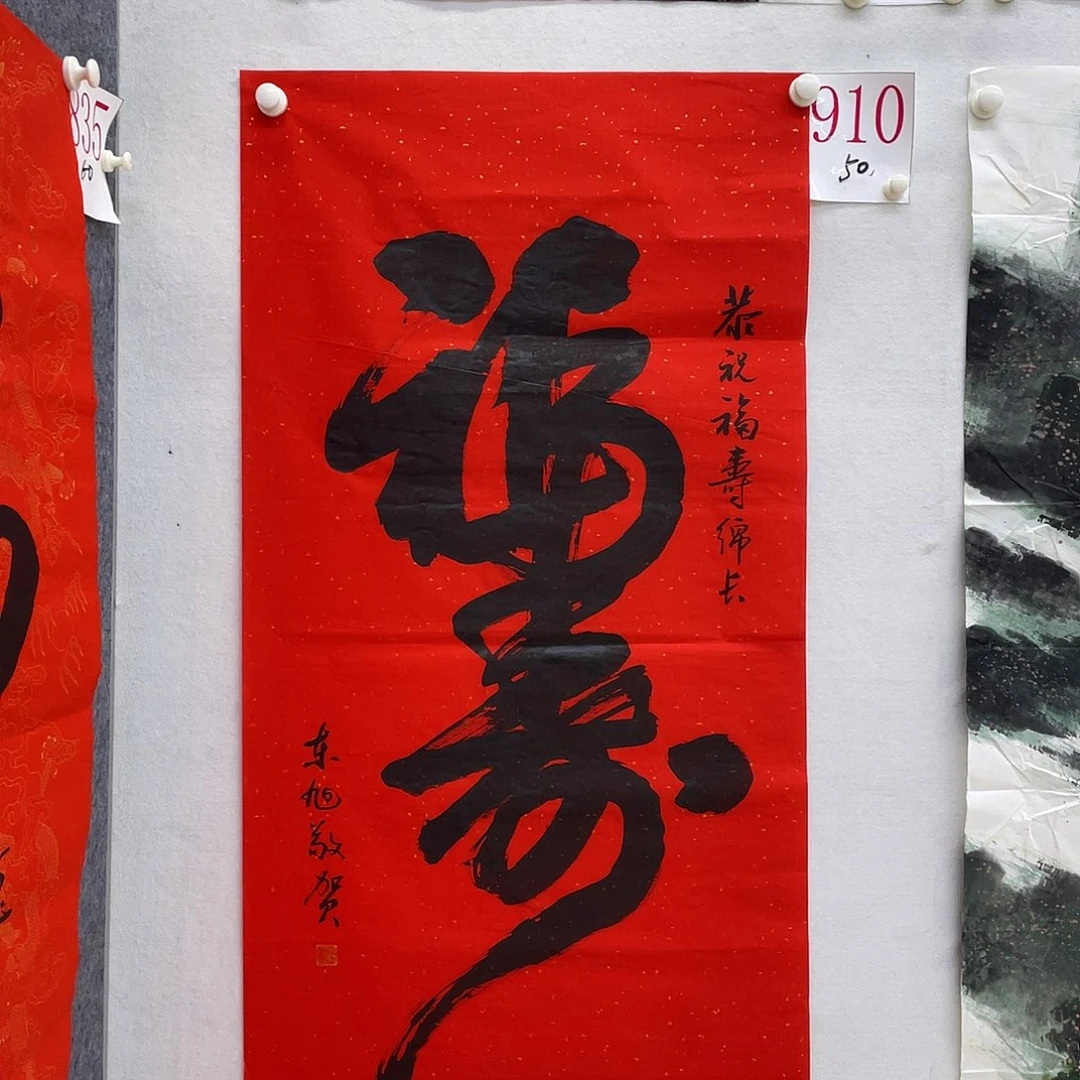 835
60
910
50.
恭祝福寿绵长
福寿
东旭敬贺